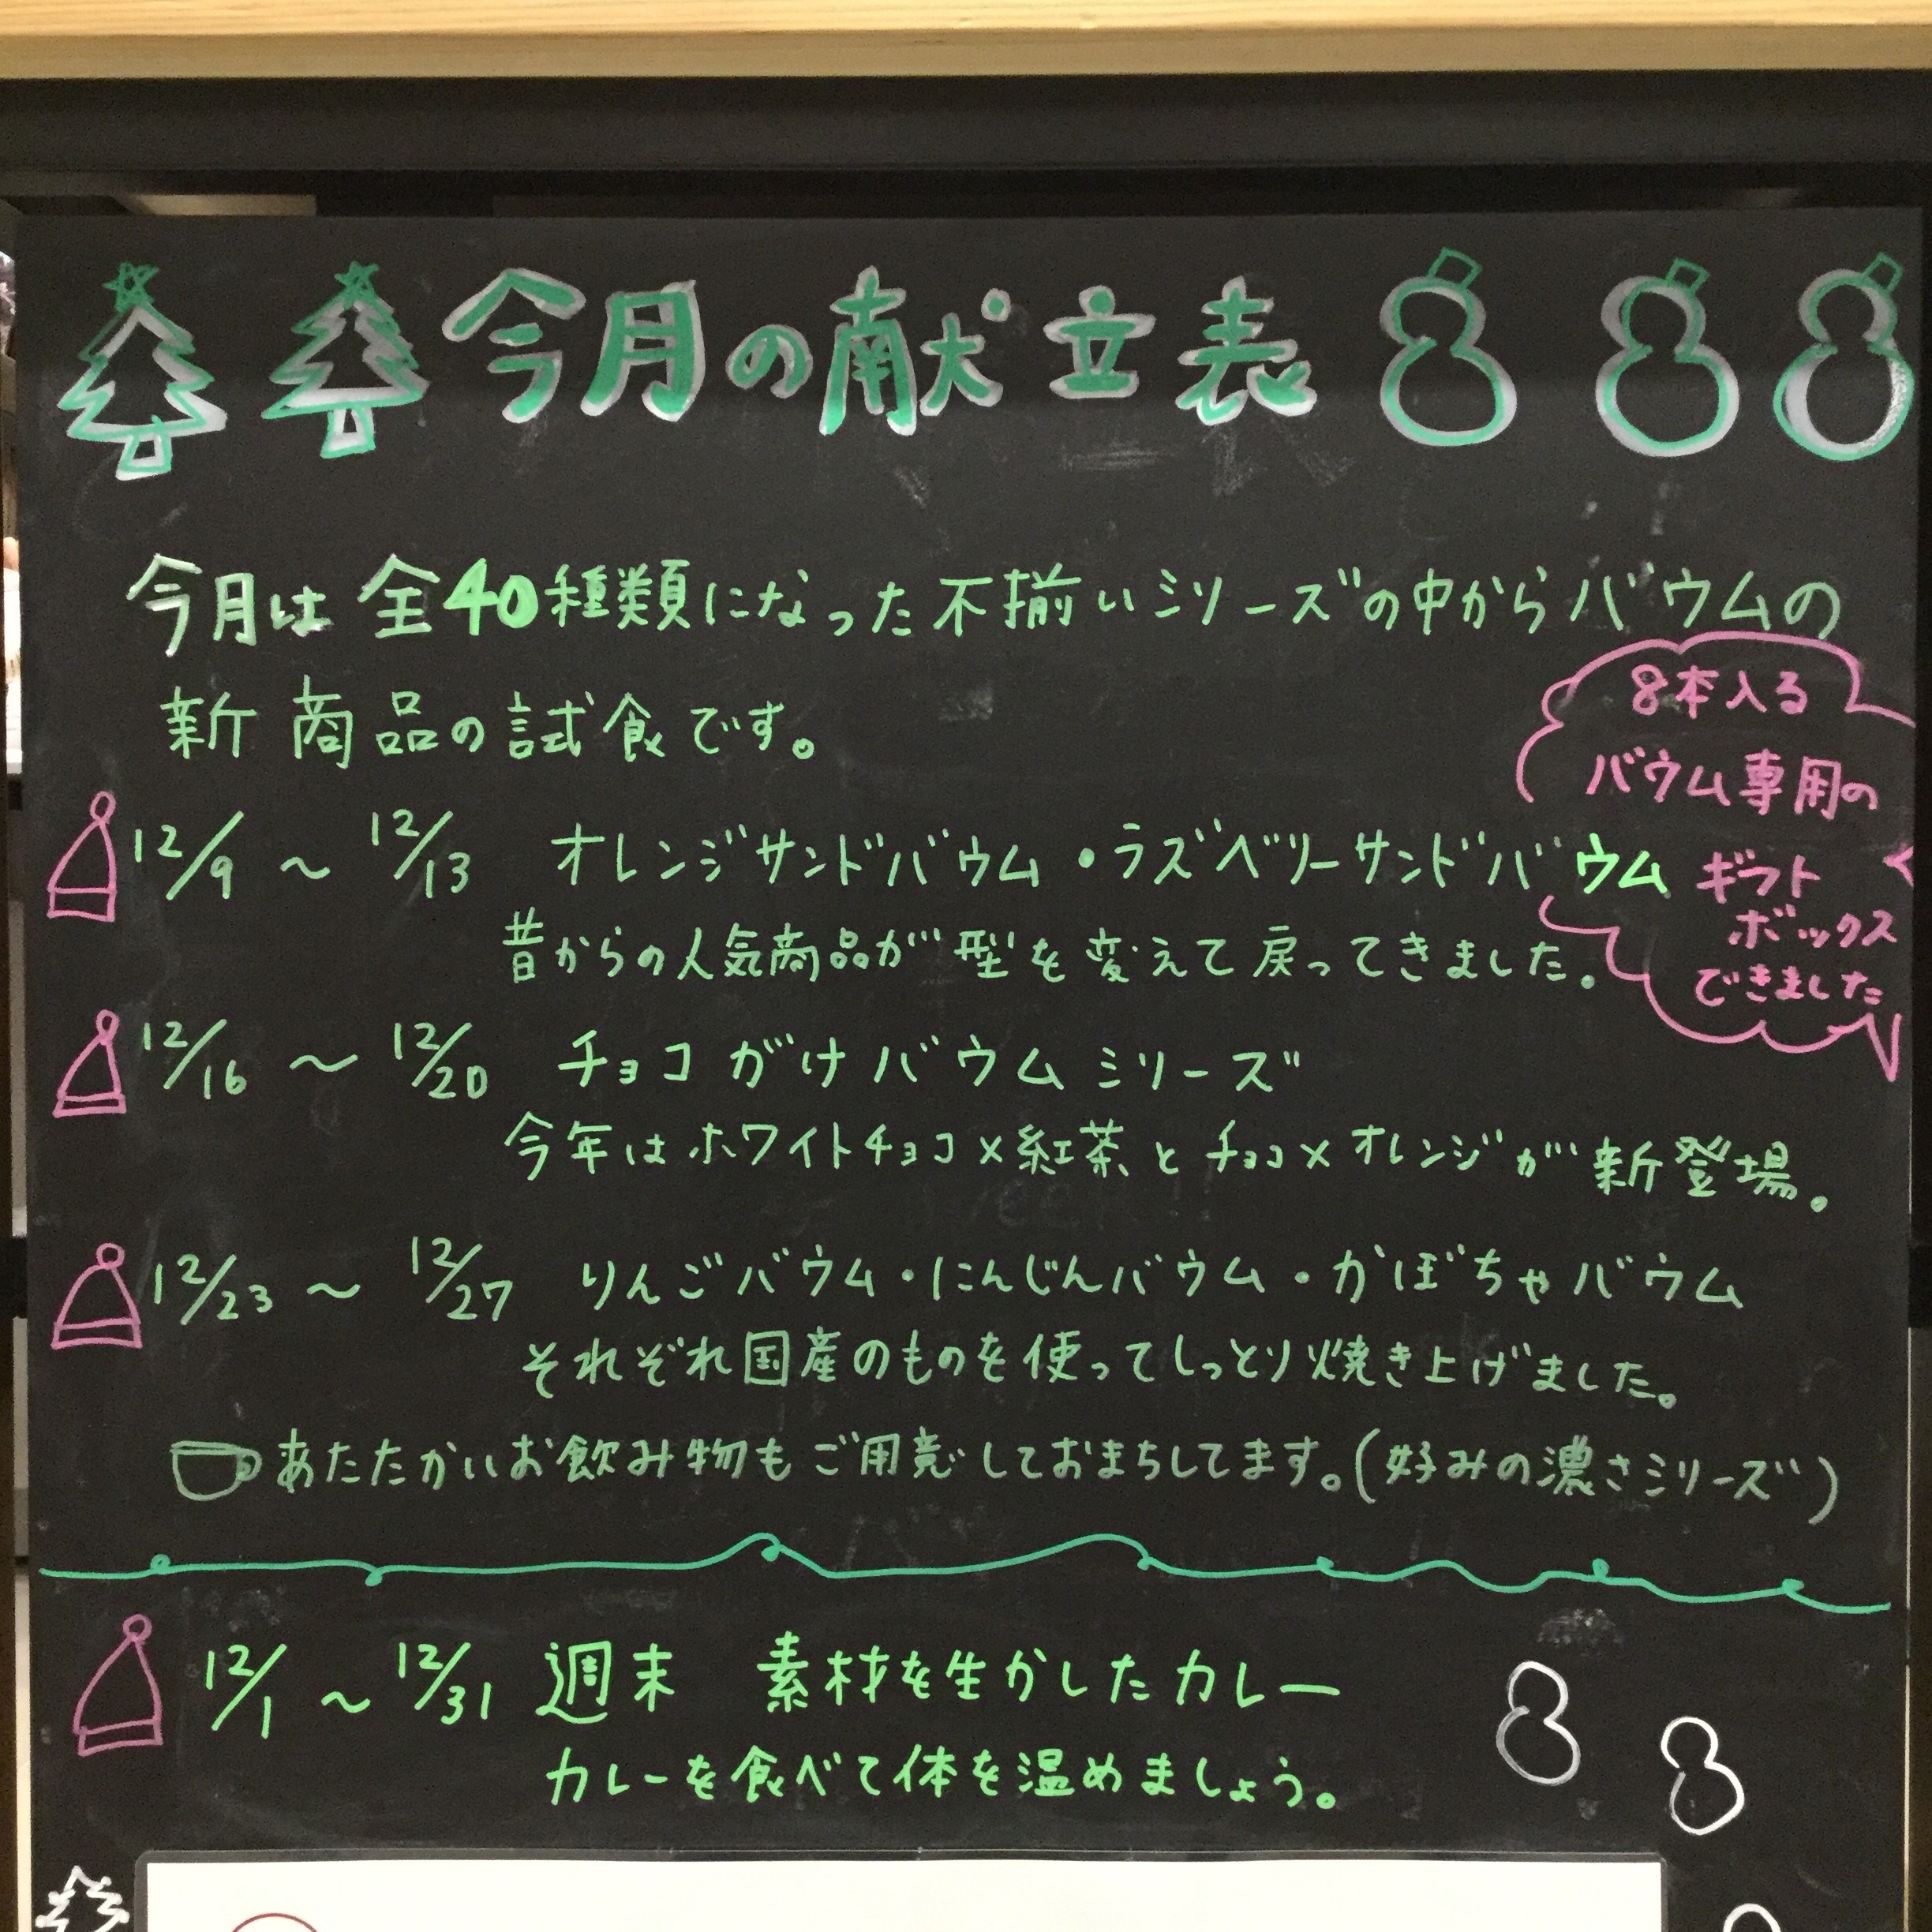 今月の献立表
今月は全40種類になった不揃いシリーズの中からバウムの
新商品の試食です。
8本入る
バウム専用の
ギフト
ボックス
できました
12/9 〜 12/13 オレンジサンドバウム・ラズベリーサンドバウム
昔からの人気商品が型を変えて戻ってきました。
12/16 〜 12/20 チョコがけバウムシリーズ
今年はホワイトチョコ×紅茶とチョコ×オレンジが新登場。
12/23 〜 12/27 りんごバウム・にんじんバウム・かぼちゃバウム
それぞれ国産のものを使ってしっとり焼き上げました。
あたたかいお飲み物もご用意しておまちしてます。(好みの濃さシリーズ)
12/1 〜 12/31 週末 素材を生かしたカレー
カレーを食べて体を温めましょう。